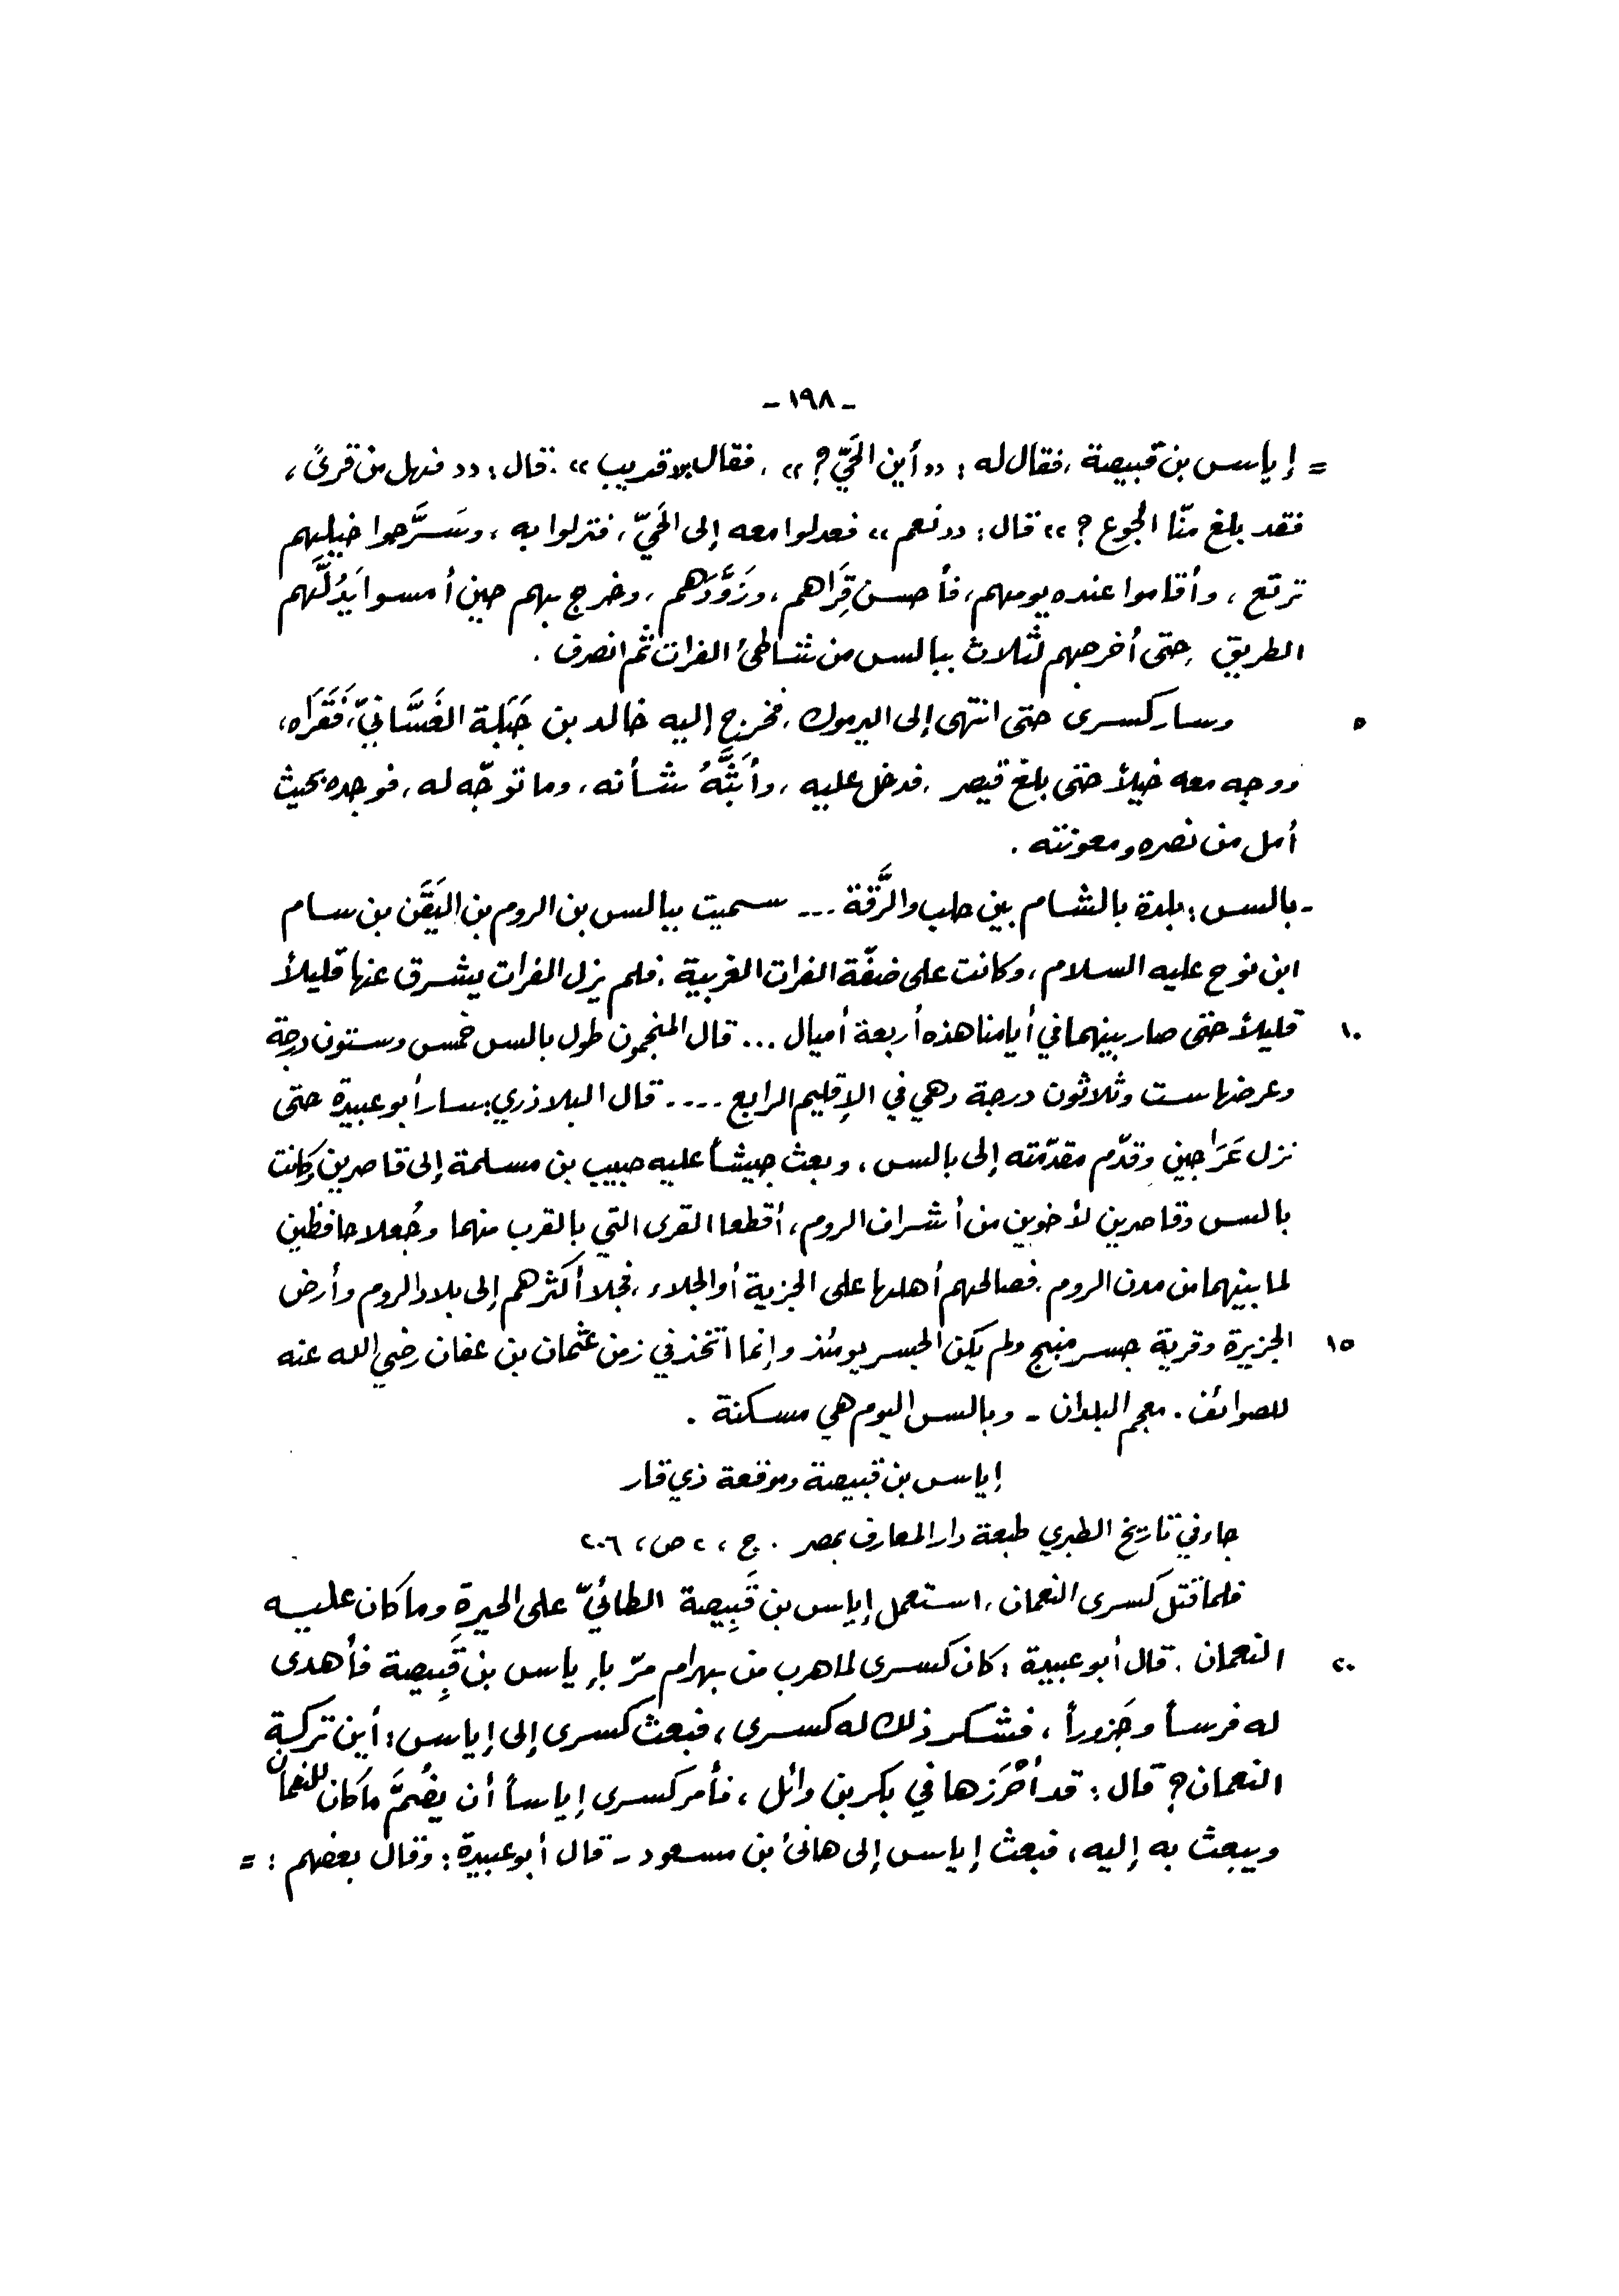 - ١٩٨ -
= إياس بن قبيصة، فقال له : «أين الحَيّ؟» ، فقال «قريب» . قال : «فهل من قرىً ،
فقد بلغ منّا الجوع؟» قال : «نعم» فعدلوا معه إلى الحَيّ، فنزلوا به ، وسَرَّحوا خيلهم
ترتع ، وأقاموا عنده يومهم، فأحسن قِرَاهم ، وزَوَّدَهم ، وخرج بهم حين أمسوا يَدُلُّهم
الطريق ، حتى أخرجهم لثلاث ببالس من شاطئ الفرات ثم انصرف .
٥ وسار كسرى حتى انتهى إلى اليرموك ، فخرج إليه خالد بن جَبَلة الغَسَّانيّ، فَقَرَاه،
ووجه معه خيلاً حتى بلغ قيصر ، فدخل عليه ، وأَبَثَّهُ شأنه ، وما توجّه له ، فوجده بحيث
أمل من نصره ومعونته .
- بالس : بلدة بالشام بين حلب والرَّقة ... سميت ببالس بن الروم بن اليَقَن بن سام
ابن نوح عليه السلام ، وكانت على ضفّة الفرات الغربية ، فلم يزل الفرات يشرق عنها قليلاً
١٠ قليلاً حتى صار بينهما في أيامنا هذه أربعة أميال ... قال المنجمون طول بالس خمس وستون درجة
وعرضها ست وثلاثون درجة وهي في الإقليم الرابع .... قال البلاذري : سار أبو عبيدة حتى
نزل عَرَاجين وقدّم مقدّمته إلى بالس ، وبعث جيشاً عليه حبيب بن مسلمة إلى قاصرين وكانت
بالس وقاصرين لأخوين من أشراف الروم ، أقطعا القرى التي بالقرب منهما وجُعلا حافظين
لما بينهما من مدن الروم . فصالحهم أهلها على الجزية أو الجلاء ، فجلا أكثرهم إلى بلاد الروم وأرض
١٥ الجزيرة وقرية جسر منبج ولم يكن الجسر يومئذ وإنما اتخذ في زمن عثمان بن عفان رضي الله عنه
للصوائف . معجم البلدان - وبالس اليوم هي مسكنة .
إياس بن قبيصة وموقعة ذي قار
جاء في تاريخ الطبري طبعة دار المعارف بمصر . ج ، ٢ ص ، ٢٠٦
فلما قتل كسرى النعمان ، استعمل إياس بن قَبِيصة الطائيّ على الحيرة وما كان عليه
٢٠ النعمان . قال أبو عبيدة : كان كسرى لما هرب من بهرام مرّ بإياس بن قَبِيصة فأهدى
له فرساً وجَزوراً ، فشكر ذلك له كسرى ، فبعث كسرى إلى إياس : أين تركة
النعمان ؟ قال : قد أَحْرَزها في بكر بن وائل ، فأمر كسرى إياساً أن يضُمَّ ما كان للنعمان
ويبعث به إليه ، فبعث إياس إلى هانئ بن مسعود - قال أبو عبيدة : وقال بعضهم : =